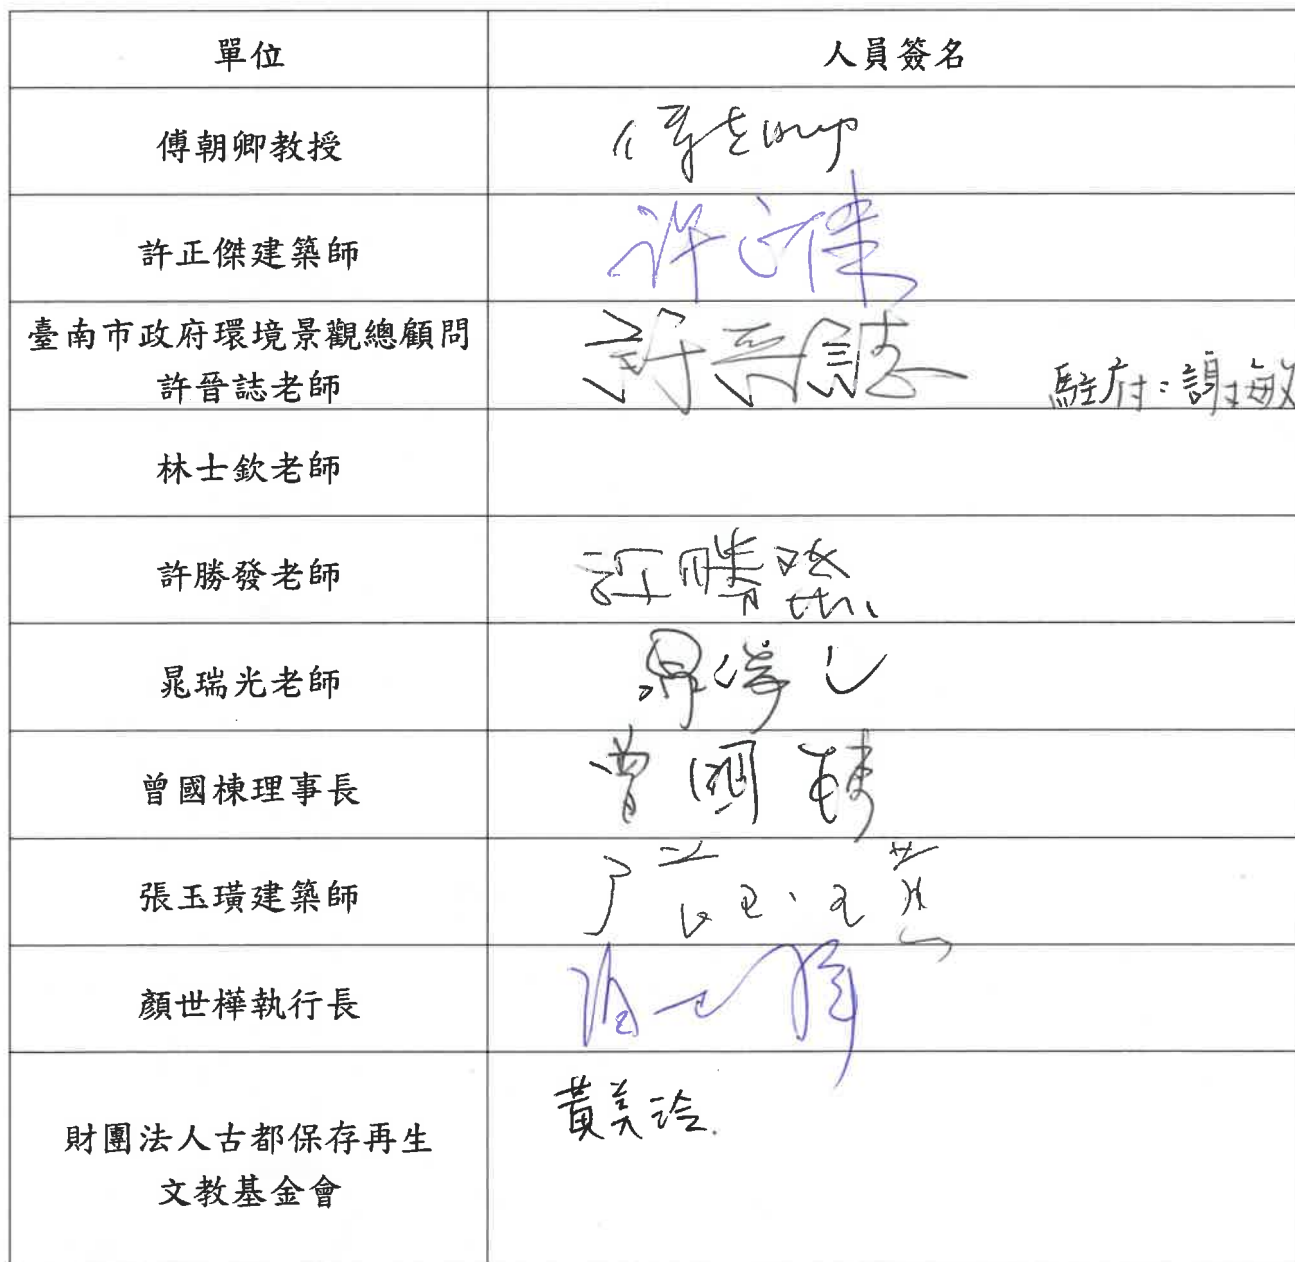 單位
人員簽名
傅朝卿教授
傅朝卿
許正傑建築師
許正傑
臺南市政府環境景觀總顧問
許晉誌老師
許晉誌
駐府：謝敏
林士欽老師
許勝發老師
許勝發
晁瑞光老師
晁瑞光
曾國棟理事長
曾國棟
張玉璜建築師
張玉璜
顏世樺執行長
顏世樺
財團法人古都保存再生
文教基金會
黃美玲